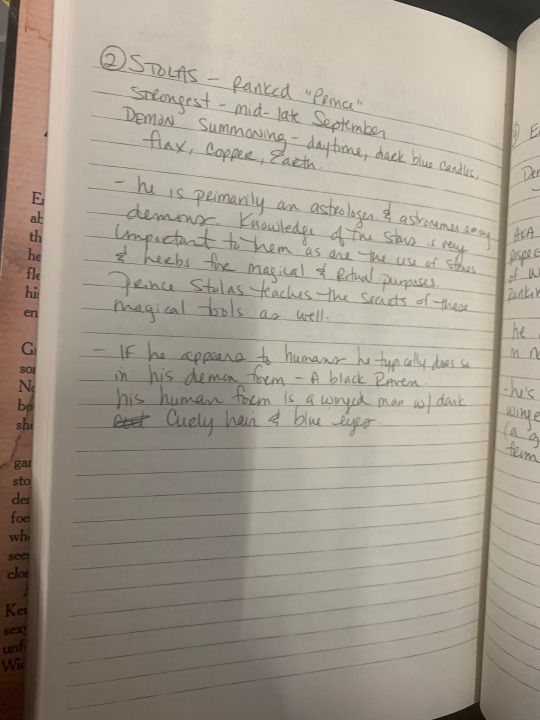 ② STOLAS – Ranked "Prince"
Strongest – mid-late September
Demon Summoning – daytime, dark blue candles,
flax, copper, Earth.
– he is primarily an astrologer & astronomer among
demons. Knowledge of the stars is very
important to them as are the use of stones
& herbs for magical & Ritual purposes.
Prince Stolas teaches the secrets of these
magical tools as well.
– IF he appears to humans he typically does so
in his demon form – A black Raven.
his human form is a winged man w/ dark
Curly hair & blue eyes.
De
AKA
he
in n
he's
winge
(a g
from
E
ab
th
he
fle
hi
en
G
so
N
bo
sh
ga
sto
der
foe
wh
see
clos
Ke
sexy
unf
Wi